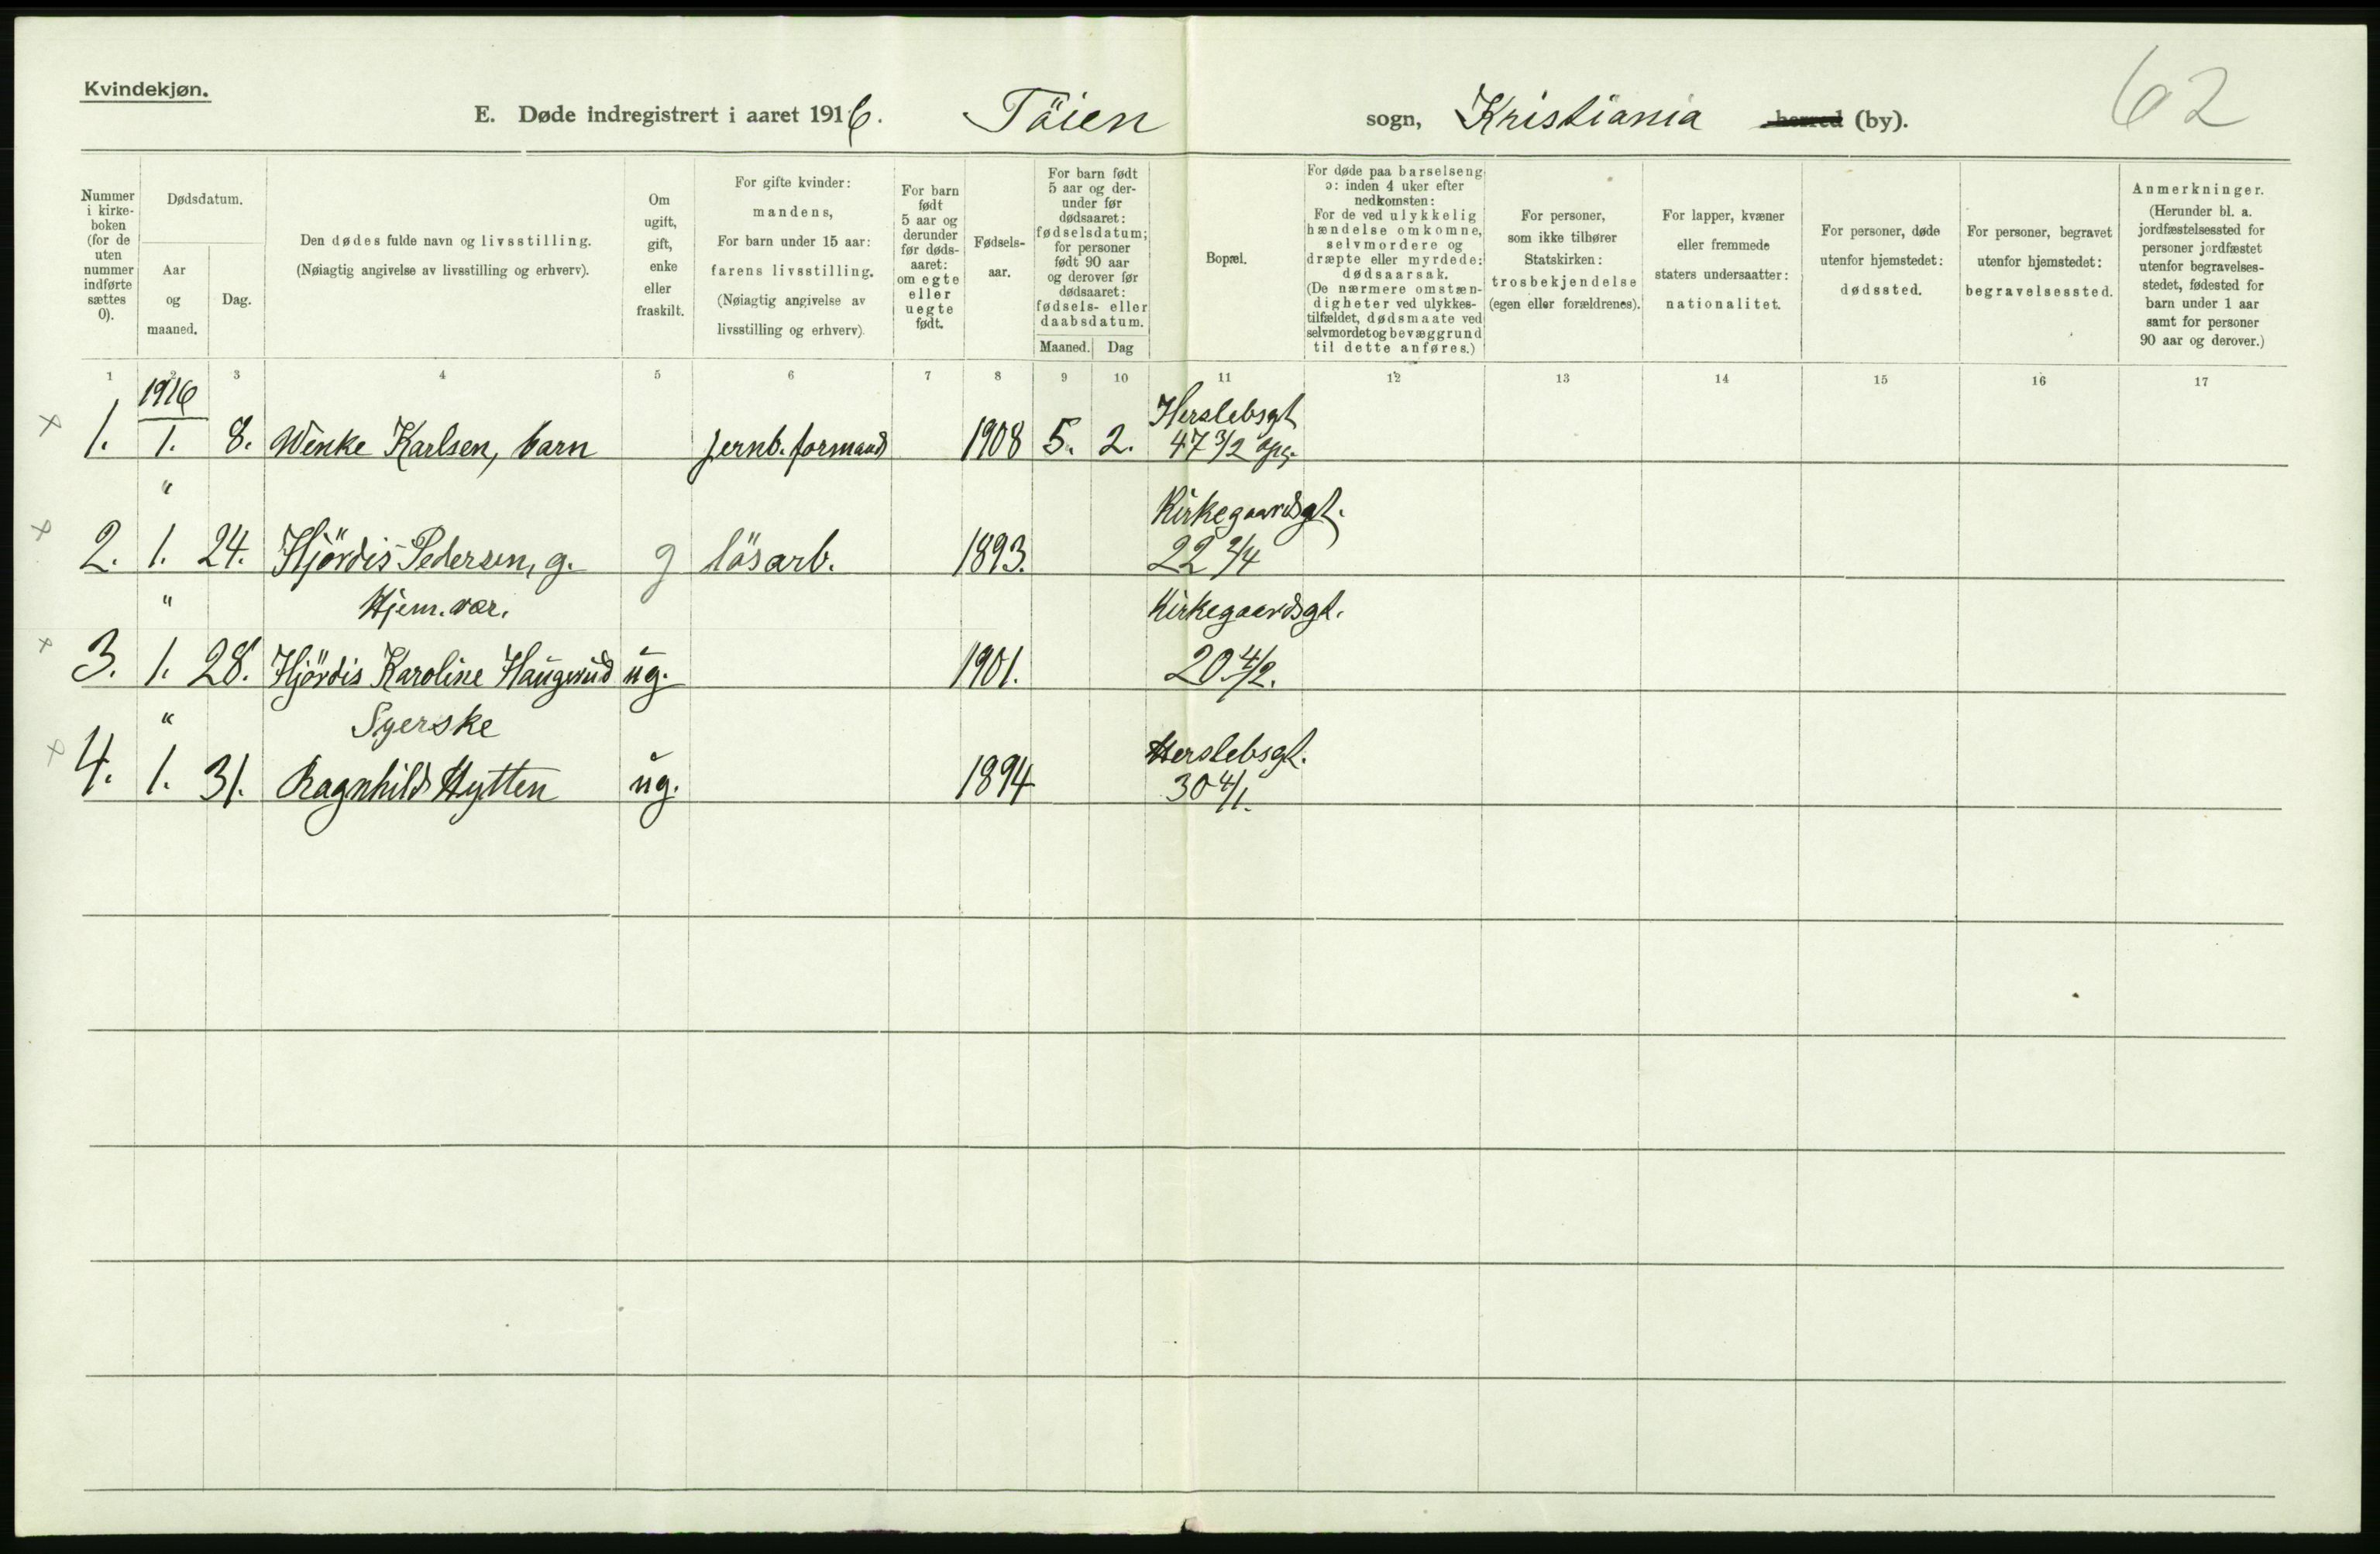 Kvindekjøn.
62
E. Døde indregistrert i aaret 1916. Töien sogn, Kristiania herred (by).
Nummer i kirke- boken (for de uten nummer indførte sættes 0).
Dødsdatum.
Aar og maaned.
Dag.
Den dødes fulde navn og livsstilling.
(Nøiagtig angivelse av livsstilling og erhverv).
Om ugift, gift, enke eller fraskilt.
For gifte kvinder:
mandens,
For barn under 15 aar:
farens livsstilling.
(Nøiagtig angivelse av
livsstilling og erhverv).
For barn født 5 aar og derunder før døds- aaret: om egte eller uegte født.
Fødsels- aar.
For barn født 5 aar og der- under før dødsaaret: fødselsdatum; for personer født 90 aar og derover før dødsaaret: fødsels- eller daabsdatum.
Maaned. Dag
Bopæl.
For døde paa barselseng
ɔ: inden 4 uker efter
nedkomsten:
For de ved ulykkelig
hændelse omkomne,
selvmordere og
dræpte eller myrdede:
dødsaarsak.
(De nærmere omstæn-
digheter ved ulykkes-
tilfældet, dødsmaate ved
selvmordet og bevæggrund
til dette anføres.)
For personer,
som ikke tilhører
Statskirken:
trosbekjendelse
(egen eller forældrenes).
For lapper, kvæner
eller fremmede
staters undersaatter:
nationalitet.
For personer, døde
utenfor hjemstedet:
dødssted.
For personer, begravet
utenfor hjemstedet:
begravelsessted.
Anmerkninger.
(Herunder bl. a.
jordfæstelsessted for
personer jordfæstet
utenfor begravelses-
stedet, fødested for
barn under 1 aar
samt for personer
90 aar og derover.)
1 2 3 4 5 6 7 8 9 10 11 12 13 14 15 16 17
1916 Herslebsgt
x 1. 1. 8. Wenke Karlsen, barn jernb. formand 1908 5. 2. 47 3/2 opg.
" Kirkegaardsgt.
x 2. 1. 24. Hjördis Pedersen, g. g lösarb. 1893. 22 2/4
" Hjem. vær. Kirkegaardsgt.
x 3. 1. 28. Hjördis Karoline Haugerud ug. 1901. 20 4/2.
" Syerske Herslebsgt.
x 4. 1. 31. Ragnhild Hytten ug. 1894 30 4/1.